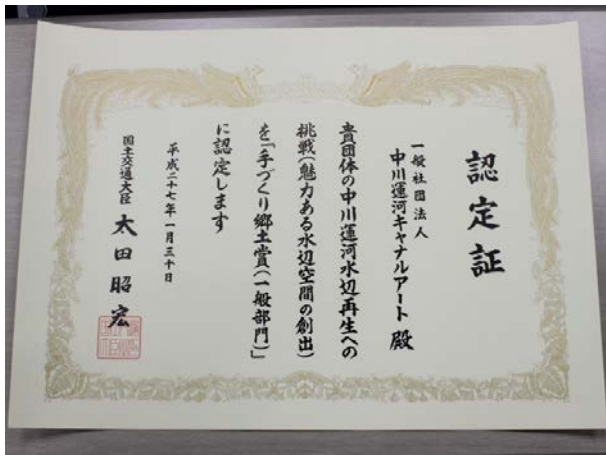 認定証
一般社団法人
中川運河キャナルアート 殿
貴団体の中川運河水辺再生への
挑戦(魅力ある水辺空間の創出)
を「手づくり郷土賞(一般部門)」
に認定します
平成二十七年一月三十日
国土交通大臣 太田昭宏